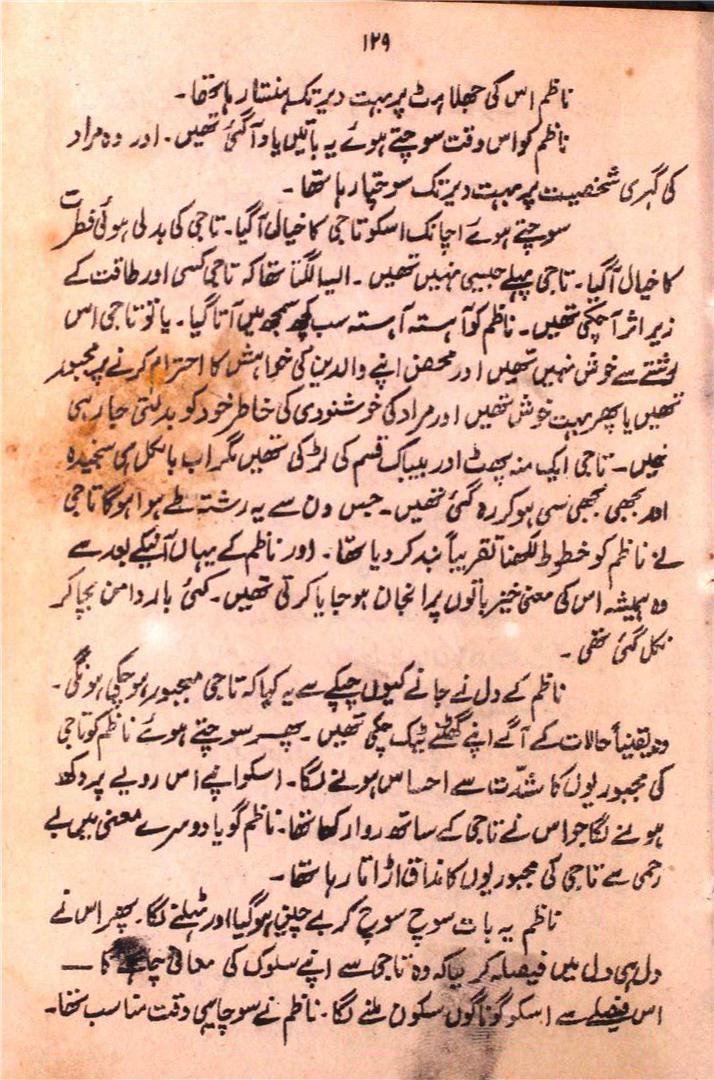 ۱۲۹
ناظم اس کی جھلاہٹ پر بہت دیر تک ہنستا رہا تھا۔
ناظم کو اس وقت سوچتے ہوئے یہ باتیں یاد آگئی تھیں۔ اور وہ مراد
کی گہری شخصیت پر بہت دیر تک سوچتا رہا تھا۔
سوچتے ہوئے اچانک اسکو تاجی کا خیال آگیا۔ تاجی کی بدلی ہوئی فطرت
کا خیال آگیا۔ تاجی پہلے جیسی نہیں تھیں۔ ایسا لگتا تھا کہ تاجی کسی اور طاقت کے
زیر اثر آچکی تھیں۔ ناظم کو آہستہ آہستہ سب کچھ سمجھ میں آتا گیا۔ یا تو تاجی اس
رشتے سے خوش نہیں تھیں اور محض اپنے والدین کی خواہش کا احترام کرنے پر مجبور
تھیں یا پھر بہت خوش تھیں اور مراد کی خوشنودی کی خاطر خود کو بدلتی جا رہی
تھیں۔ تاجی ایک منہ پھٹ اور بیباک قسم کی لڑکی تھیں مگر اب بالکل ہی سنجیدہ
اور بجھی بجھی سی ہو کر رہ گئی تھیں۔ جس دن سے یہ رشتہ طے ہوا ہوگا تاجی
نے ناظم کو خطوط لکھنا تقریباً بند کر دیا تھا۔ اور ناظم کے یہاں آنیکے بعد سے
وہ ہمیشہ اس کی معنی خیز باتوں پر انجان ہو جایا کرتی تھیں۔ کئی بار دامن بچا کر
نکل گئی تھی۔
ناظم کے دل نے جانے کیوں چپکے سے یہ کہا کہ تاجی مجبور ہو چکی ہونگی۔
وہ یقیناً حالات کے آگے اپنے گھٹنے ٹیک چکی تھیں۔ پھر سوچتے ہوئے ناظم کو تاجی
کی مجبوریوں کا شدّت سے احساس ہونے لگا۔ اسکو اپنے اس رویے پر دکھ
ہونے لگا جو اس نے تاجی کے ساتھ روا رکھا تھا۔ ناظم گویا دوسرے معنی میں بے
رحمی سے تاجی کی مجبوریوں کا مذاق اڑاتا رہا تھا۔
ناظم یہ بات سوچ سوچ کر بے چین ہوگیا اور ٹہلنے لگا۔ پھر اس نے
دل ہی دل میں فیصلہ کر لیا کہ وہ تاجی سے اپنے سلوک کی معافی چاہے گا ——
اس فیصلے سے اسکو گوناگوں سکون ملنے لگا۔ ناظم نے سوچا یہی وقت مناسب تھا۔